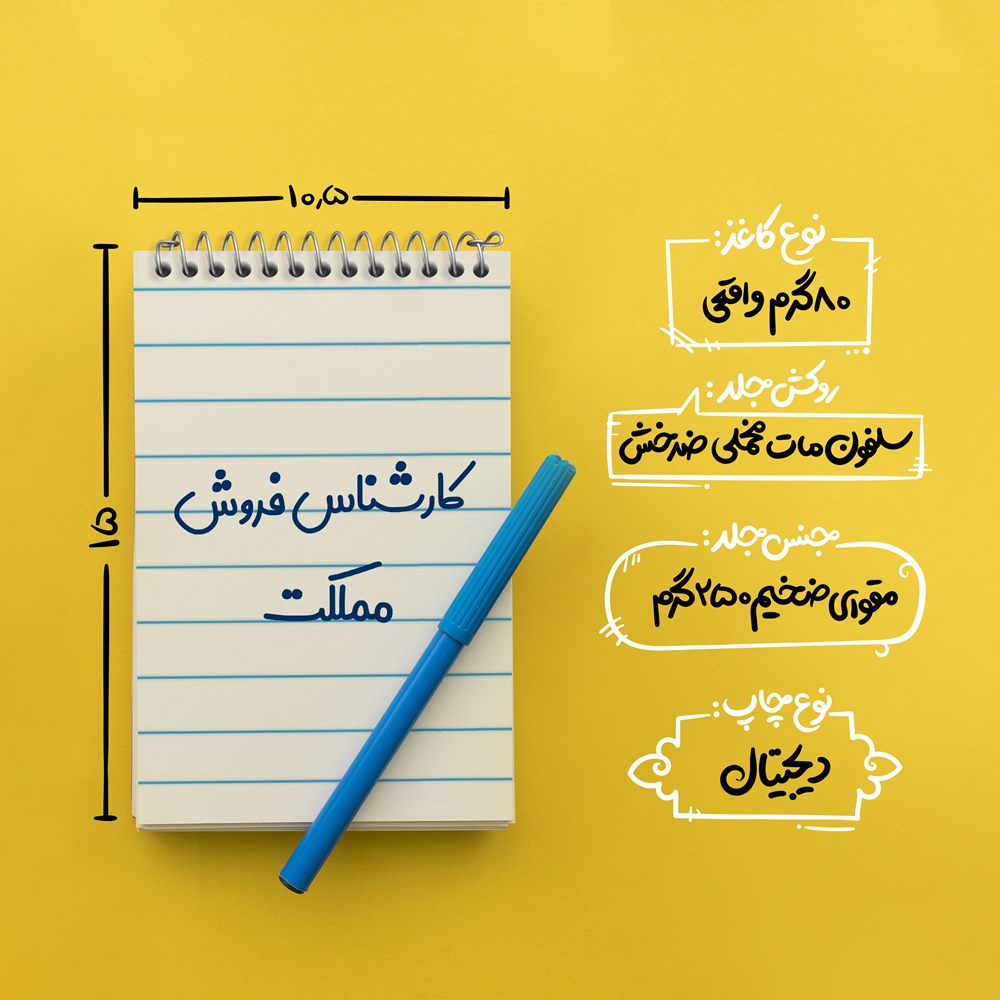 ۱۰,۵
۱۵
کارشناس فروش
مملکت
نوع کاغذ:
۸۰گرم واقعی
روکش جلد:
سلفون مات مخملی ضدخش
جنس جلد:
مقوای ضخیم ۲۵۰گرم
نوع چاپ:
دیجیتال